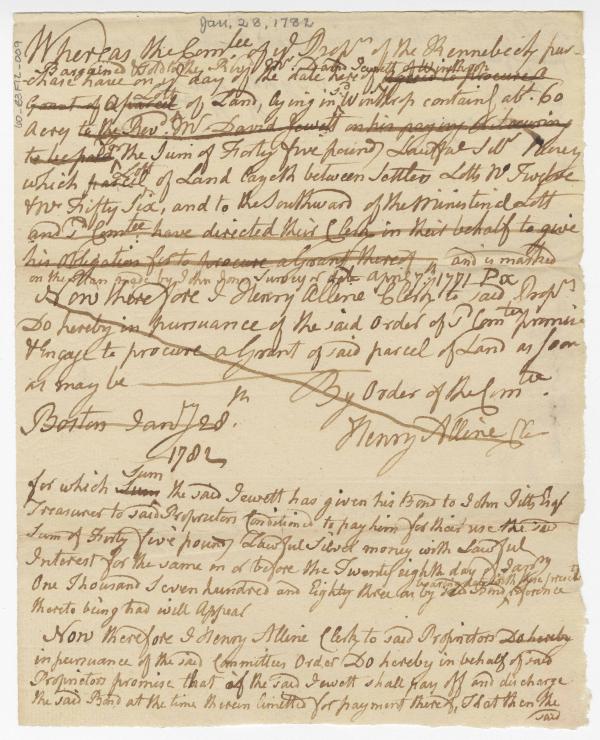 Jan. 28, 1782
Whereas the Comtee of ye. Proprs. of the Kennebeck pur-
Bargained & sold to the Revd. Mr. David Jewett of Winthrop
chase have on ye day of the date hereof agreed to procure a
Grant of a parcel Lott of Land, lying in sd. Winthrop containg abt. 60
Acres to the Revd. Mr. David Jewett on his paying or securing
to be paid for the Sum of Forty five pounds Lawful Silr. Money
which parcel Lott of Land layeth between Settlers Lotts No. Twelve
& No. Fifty Six, and to the Southward of the Ministerial Lott
and sd. Comtee. have directed their Clerk in their behalf to give
his obligation for to procure a Grant thereof and is marked
on the Plan made by John Jones Surveyor datd. April 7th. 1771 P x
Now therefore I Henry Alline Clerk to said Proprs.
Do hereby in pursuance of the said Order of sd. Comtee promise
& Engage to procure a Grant of said parcel of Land as soon
as may be
By Order of the Comtee.
Boston Jany 28th.
Henry Alline Cle
1782
for which Sum Sum the said Jewett has given his Bond to John Pitts Esqr
Treasurer to said Proprietors Conditioned to pay him for their use the said
Sum of Forty five pounds Lawful Silver money with Lawful
Interest for the same on or before the Twenty eighth day of January
One Thousand Seven hundred and Eighty three as by said Bond bearing date with these presents reference
thereto being had will Appear
Now therefore I Henry Alline Clerk to said Proprietors Do hereby
in pursuance of the said Committees Order Do hereby in behalf of said
Proprietors promise that if the said Jewett shall pay off and discharge
the said Bond at the time therein limitted for payment thereof, That then the
said